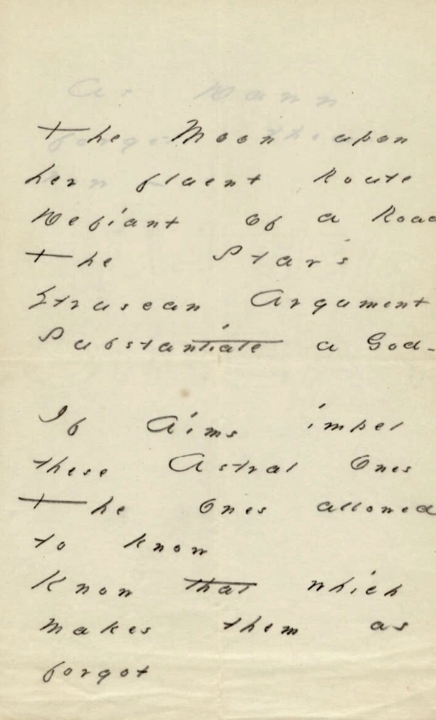 The Moon upon
her fluent Route
Defiant Of a Road
The Star's
Etruscan Argument
Substantiate a God -
If Aims impel
these Astral Ones
The Ones allowed
to know
Know that which
makes them as
forgot